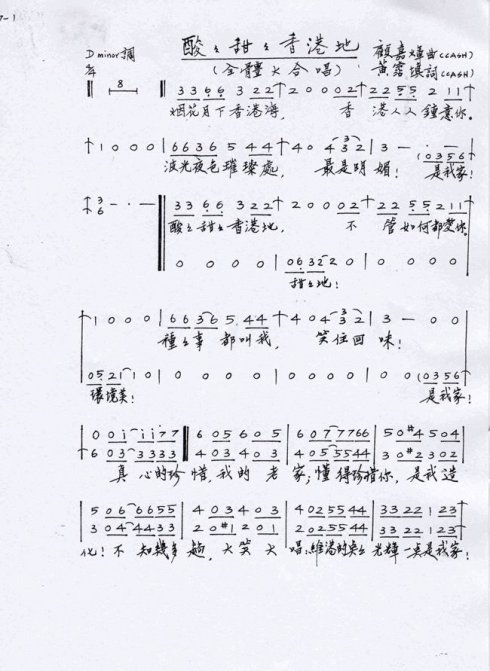 7-1
D minor 調 酸々甜々香港地 顧嘉煇曲(CASH)
4/4 (全體大合唱) 黃霑填詞(CASH)
8 3 3 6 6 3 2 2 2 0 0 0 0 2 2 2 5 5 2 1 1
烟花月下香港海, 香 港人人鍾意你。
1 0 0 0 6 6 3 6 5 4 4 4 0 4 3 2 3 - · - (0 3 5 6
波光夜色璀璨處, 最是明媚! 是我家!
3 - · - 3 3 6 6 3 2 2 2 0 0 0 0 2 2 2 5 5 2 1 1
6
酸々甜々香港地, 不 管如何都愛你。
0 0 0 0 0 6 3 2 2 0 0 0 0 0
甜々地!
1 0 0 0 6 6 3 6 5. 4 4 4 0 4 3 2 3 - 0 0
種々事 都叫我, 笑住回味!
0 5 2 1 1 0 0 0 0 0 0 0 0 0 0 0 (0 3 5 6
環境美! 是我家!
0 0 i i i 7 7 6 0 5 6 0 5 6 0 7 7 7 6 6 5 0 #4 5 0 4
6 0 3 3 3 3 3 4 0 3 4 0 3 4 0 5 5 5 4 4 3 0 #2 3 0 2
真 心的珍惜,我的 老 家;懂得珍惜你, 是我造
5 0 6 6 6 5 5 4 0 3 4 0 3 4 0 2 5 5 4 4 3 3 2 2 1 2 3
3 0 4 4 4 3 3 2 0 #1 2 0 1 2 0 2 5 5 4 4 3 3 2 2 1 2 3
化!不 知幾多 趟, 大笑大 唱:維港的點々光輝 一点是我家!